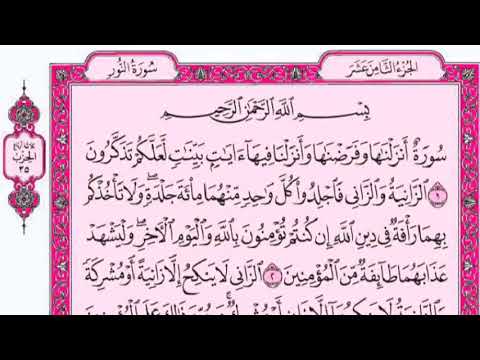 الجُزْءُ الثَّامِنَ عَشَرَ
سُورَةُ النُّورِ
بِسْمِ ٱللَّهِ ٱلرَّحْمَٰنِ ٱلرَّحِيمِ
سُورَةٌ أَنزَلْنَٰهَا وَفَرَضْنَٰهَا وَأَنزَلْنَا فِيهَآ ءَايَٰتٍۭ بَيِّنَٰتٍ لَّعَلَّكُمْ تَذَكَّرُونَ
١ ٱلزَّانِيَةُ وَٱلزَّانِي فَٱجْلِدُوا۟ كُلَّ وَٰحِدٍ مِّنْهُمَا مِا۟ئَةَ جَلْدَةٍ ۖ وَلَا تَأْخُذْكُم
بِهِمَا رَأْفَةٌ فِي دِينِ ٱللَّهِ إِن كُنتُمْ تُؤْمِنُونَ بِٱللَّهِ وَٱلْيَوْمِ ٱلْءَاخِرِ ۖ وَلْيَشْهَدْ
عَذَابَهُمَا طَآئِفَةٌ مِّنَ ٱلْمُؤْمِنِينَ ٢ ٱلزَّانِي لَا يَنكِحُ إِلَّا زَانِيَةً أَوْ مُشْرِكَةً
الحِزْب
٣٥